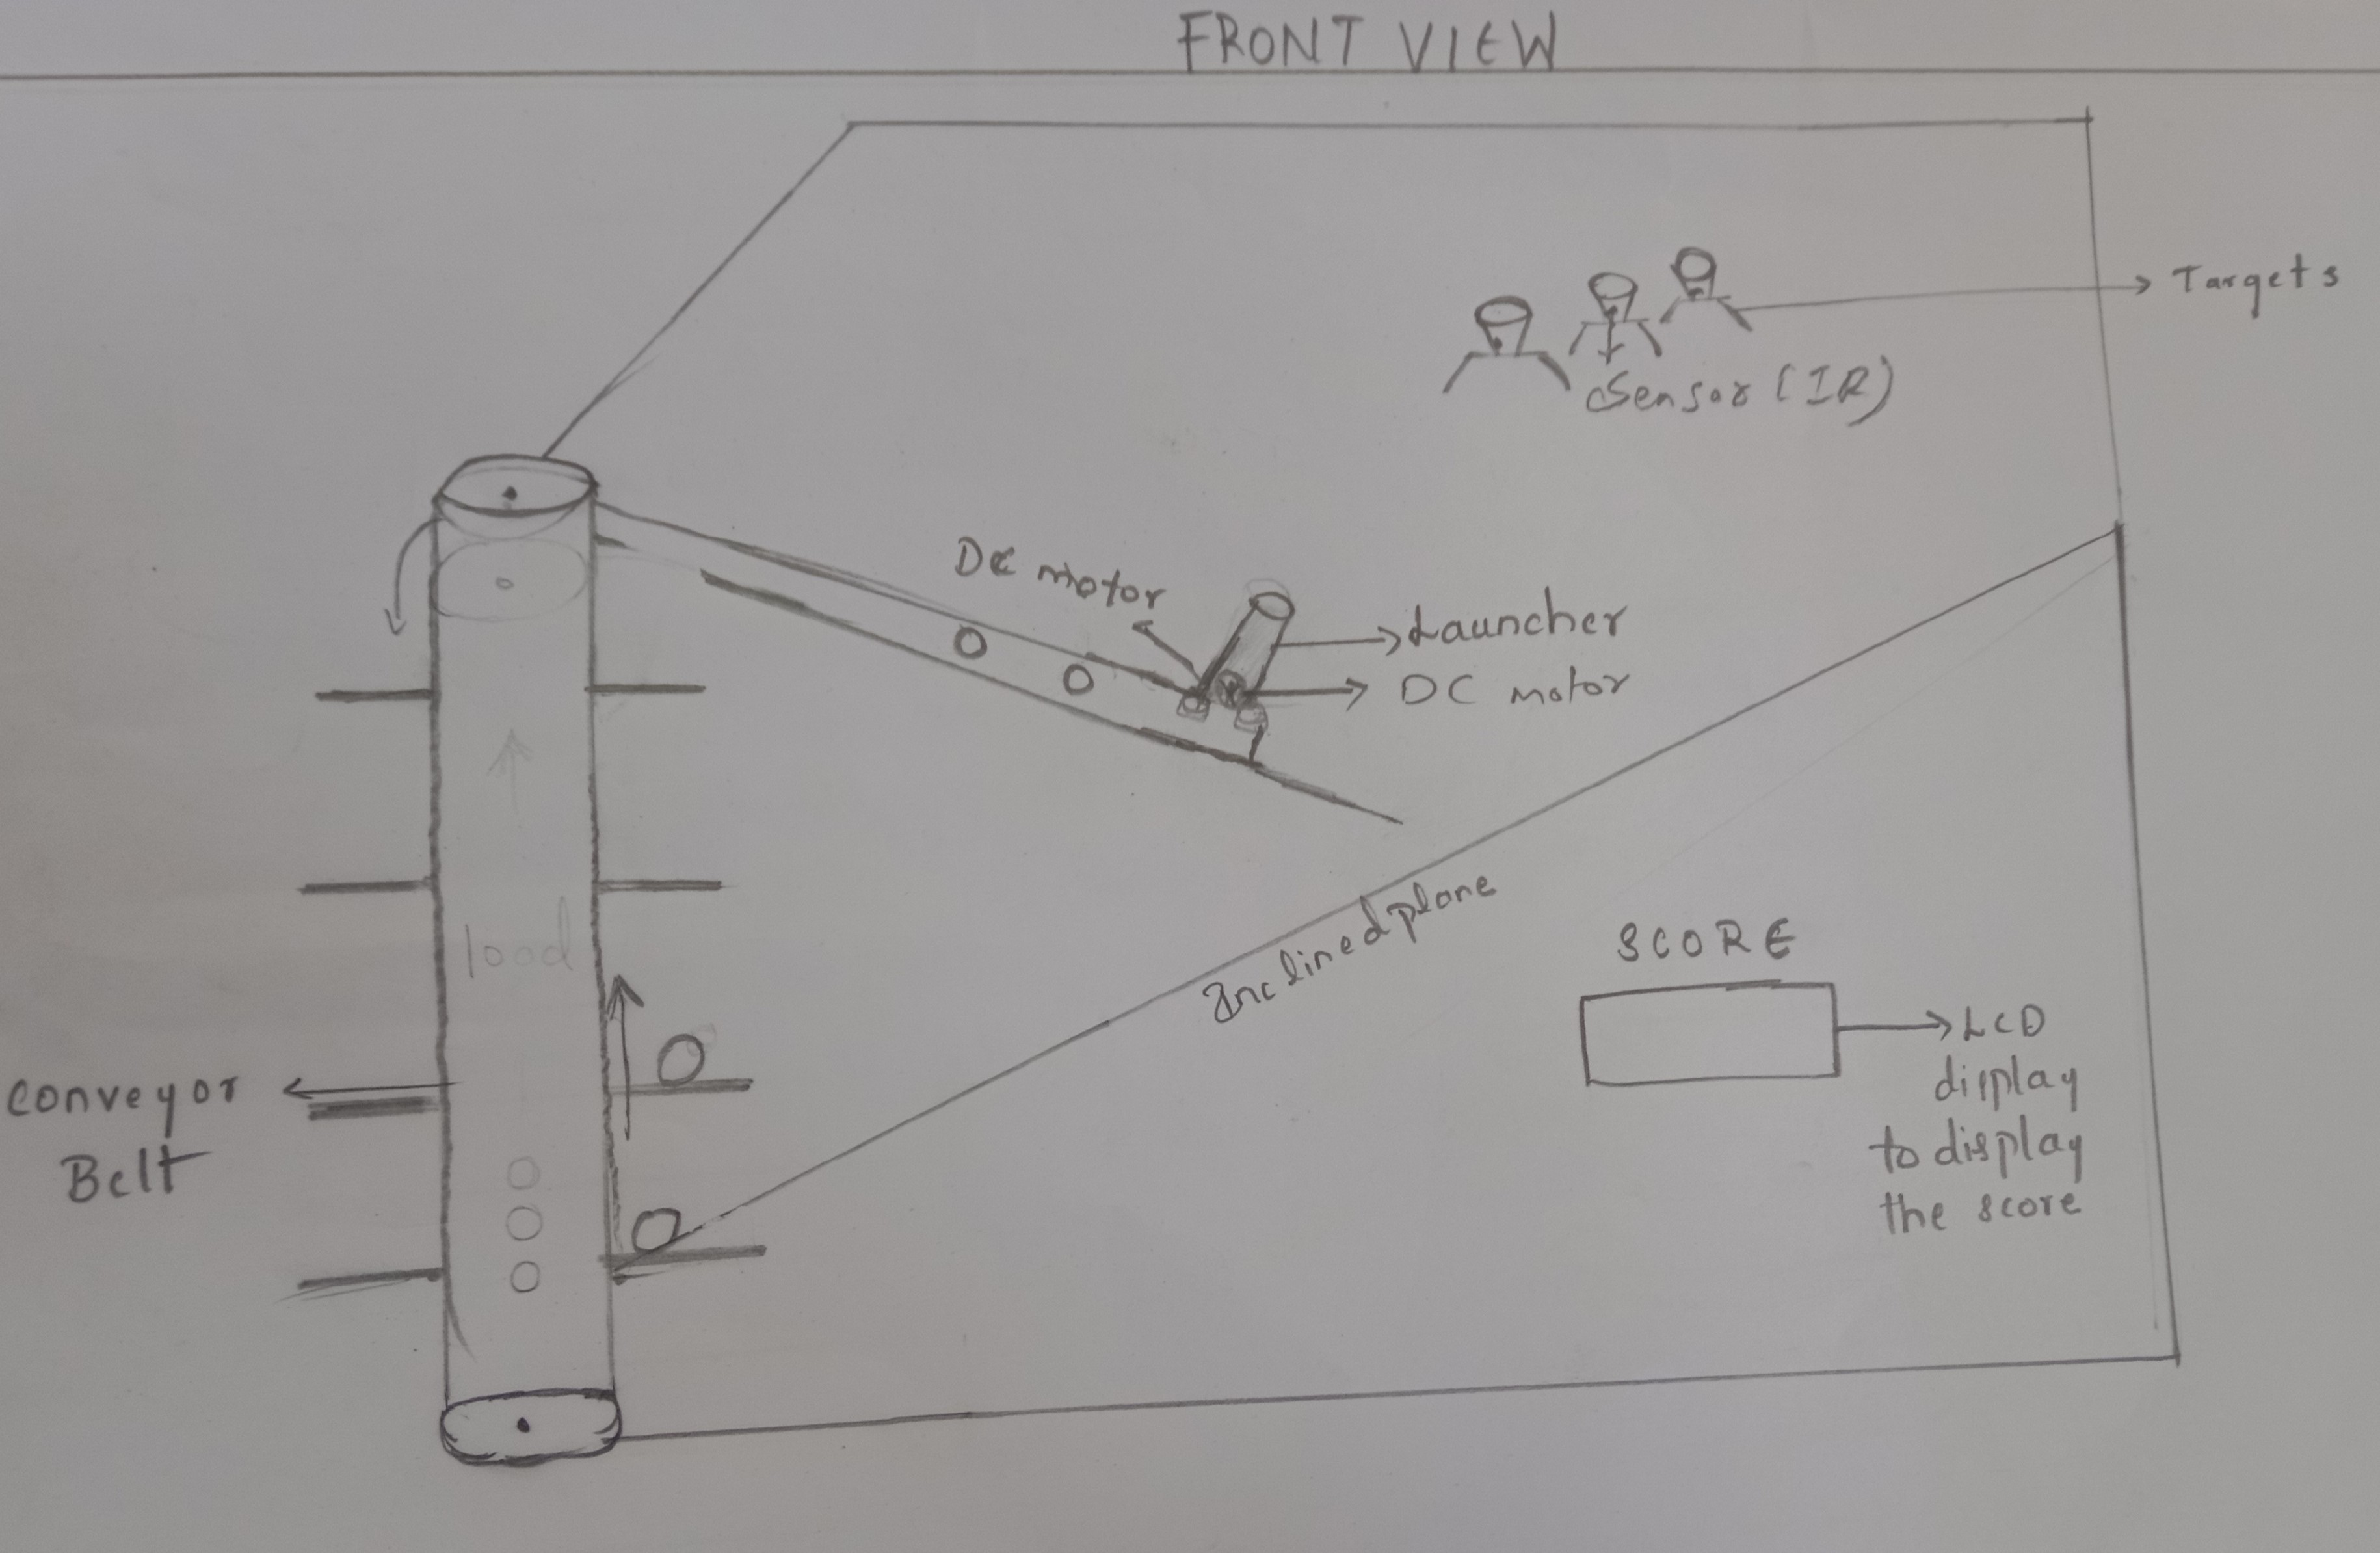 FRONT VIEW
Targets
Sensor (IR)
DC motor
Launcher
DC motor
load
Inclined plane
SCORE
LCD
display
to display
the score
Conveyor
Belt